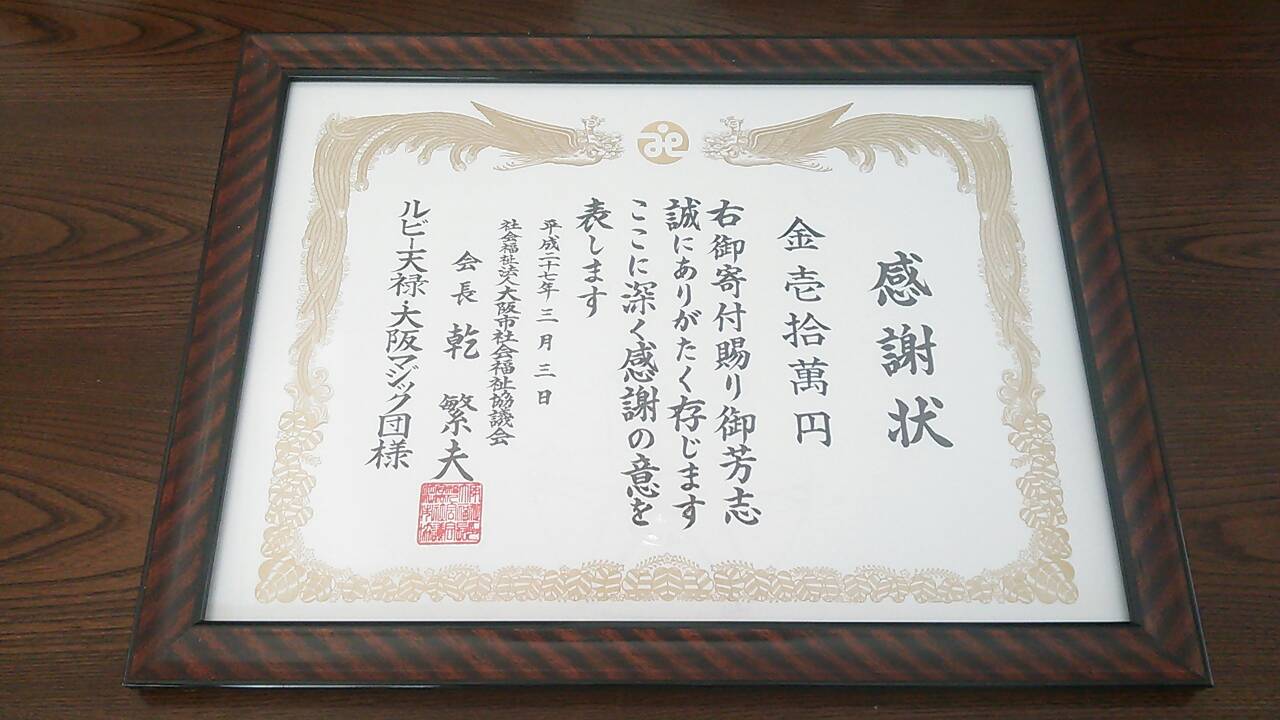 感謝状
金壱拾萬円
右御寄付賜り御芳志
誠にありがたく存じます
ここに深く感謝の意を
表します
平成二十七年三月三日
社会福祉法人大阪市社会福祉協議会
会長 乾 繁夫
ルビー天禄・大阪マジック団様